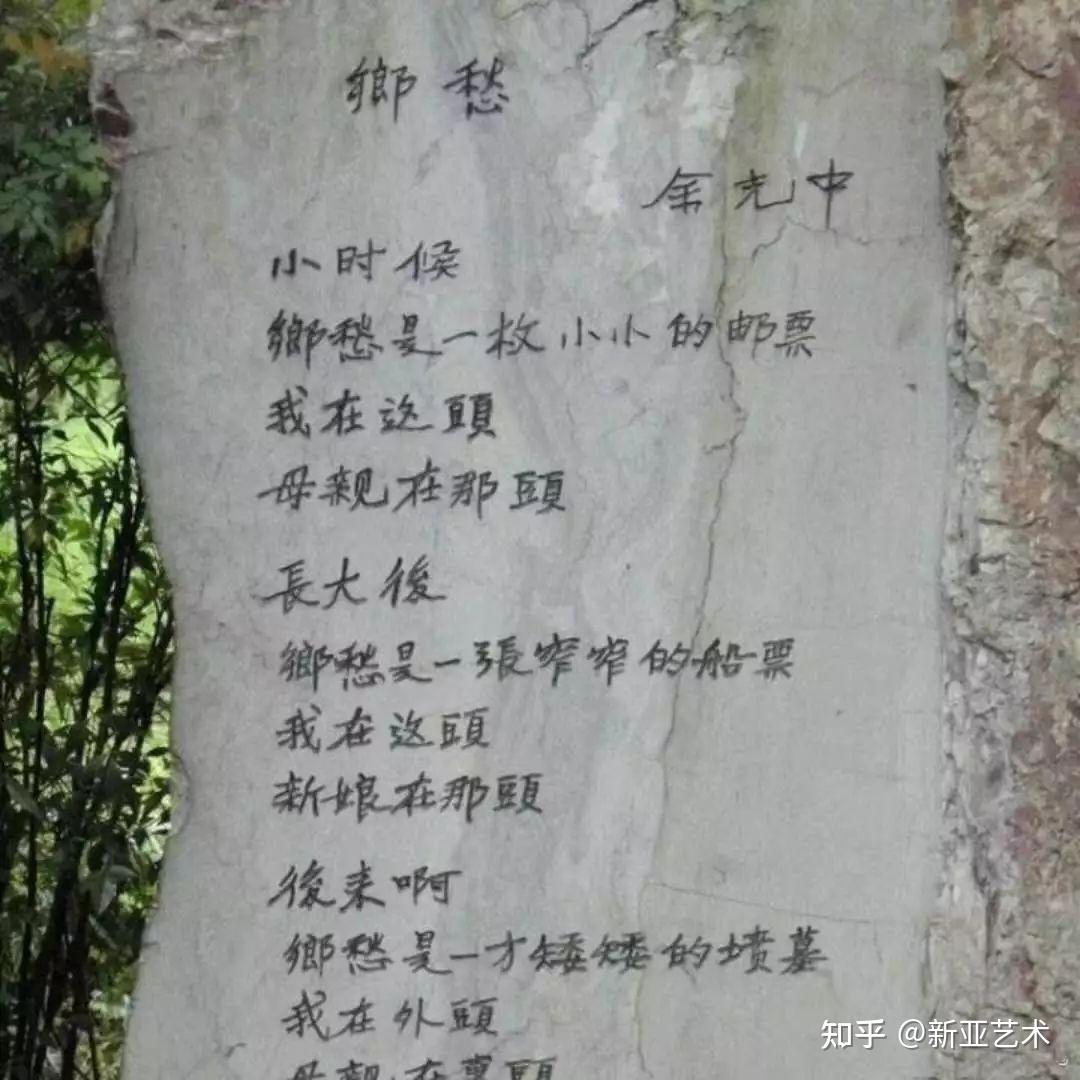 鄉愁
余光中
小时候
鄉愁是一枚小小的邮票
我在这頭
母親在那頭
長大後
鄉愁是一張窄窄的船票
我在这頭
新娘在那頭
後来啊
鄉愁是一方矮矮的墳墓
我在外頭
母親在裏頭
知乎 @新亚艺术